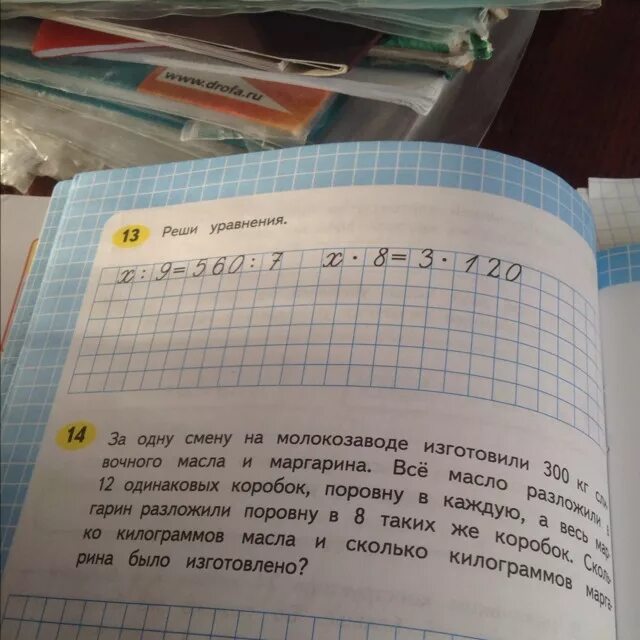 www.drofa.ru
13 Реши уравнения.
x : 9 = 560 : 7 x · 8 = 3 · 120
14 За одну смену на молокозаводе изготовили 300 кг
вочного масла и маргарина. Всё масло разложили в
12 одинаковых коробок, поровну в каждую, а весь мар
гарин разложили поровну в 8 таких же коробок. Сколь-
ко килограммов масла и сколько килограммов марга-
рина было изготовлено?